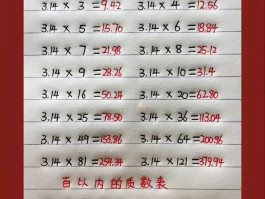 3.14 × 3 = 9.42 3.14 × 4 = 12.56
3.14 × 5 = 15.70 3.14 × 6 = 18.84
3.14 × 7 = 21.98 3.14 × 8 = 25.12
3.14 × 9 = 28.26 3.14 × 10 = 31.4
3.14 × 16 = 50.24 3.14 × 20 = 62.80
3.14 × 25 = 78.50 3.14 × 36 = 113.04
3.14 × 49 = 153.86 3.14 × 64 = 200.96
3.14 × 81 = 254.34 3.14 × 121 = 379.94
百以内的质数表